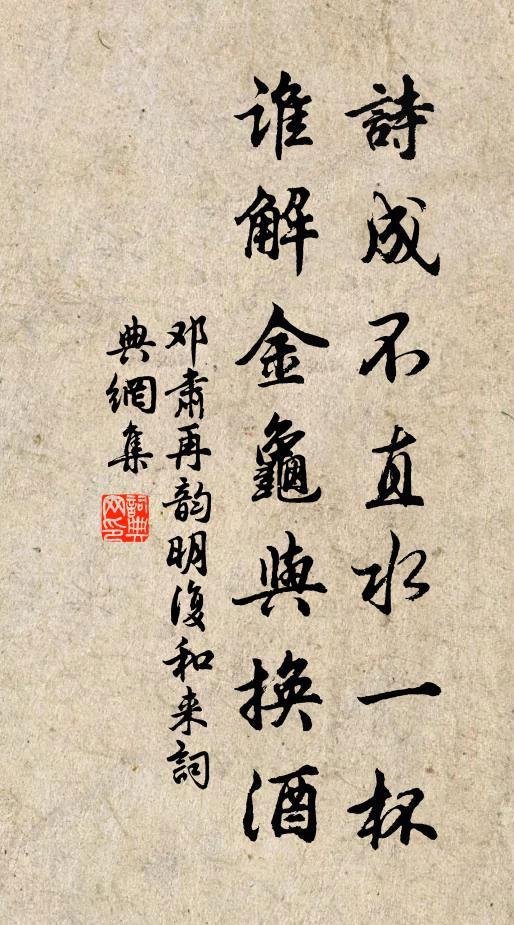 詩成不直水一杯
谁解金龜與換酒
邓肅再韵明復和来詞
典網集
詞典网印